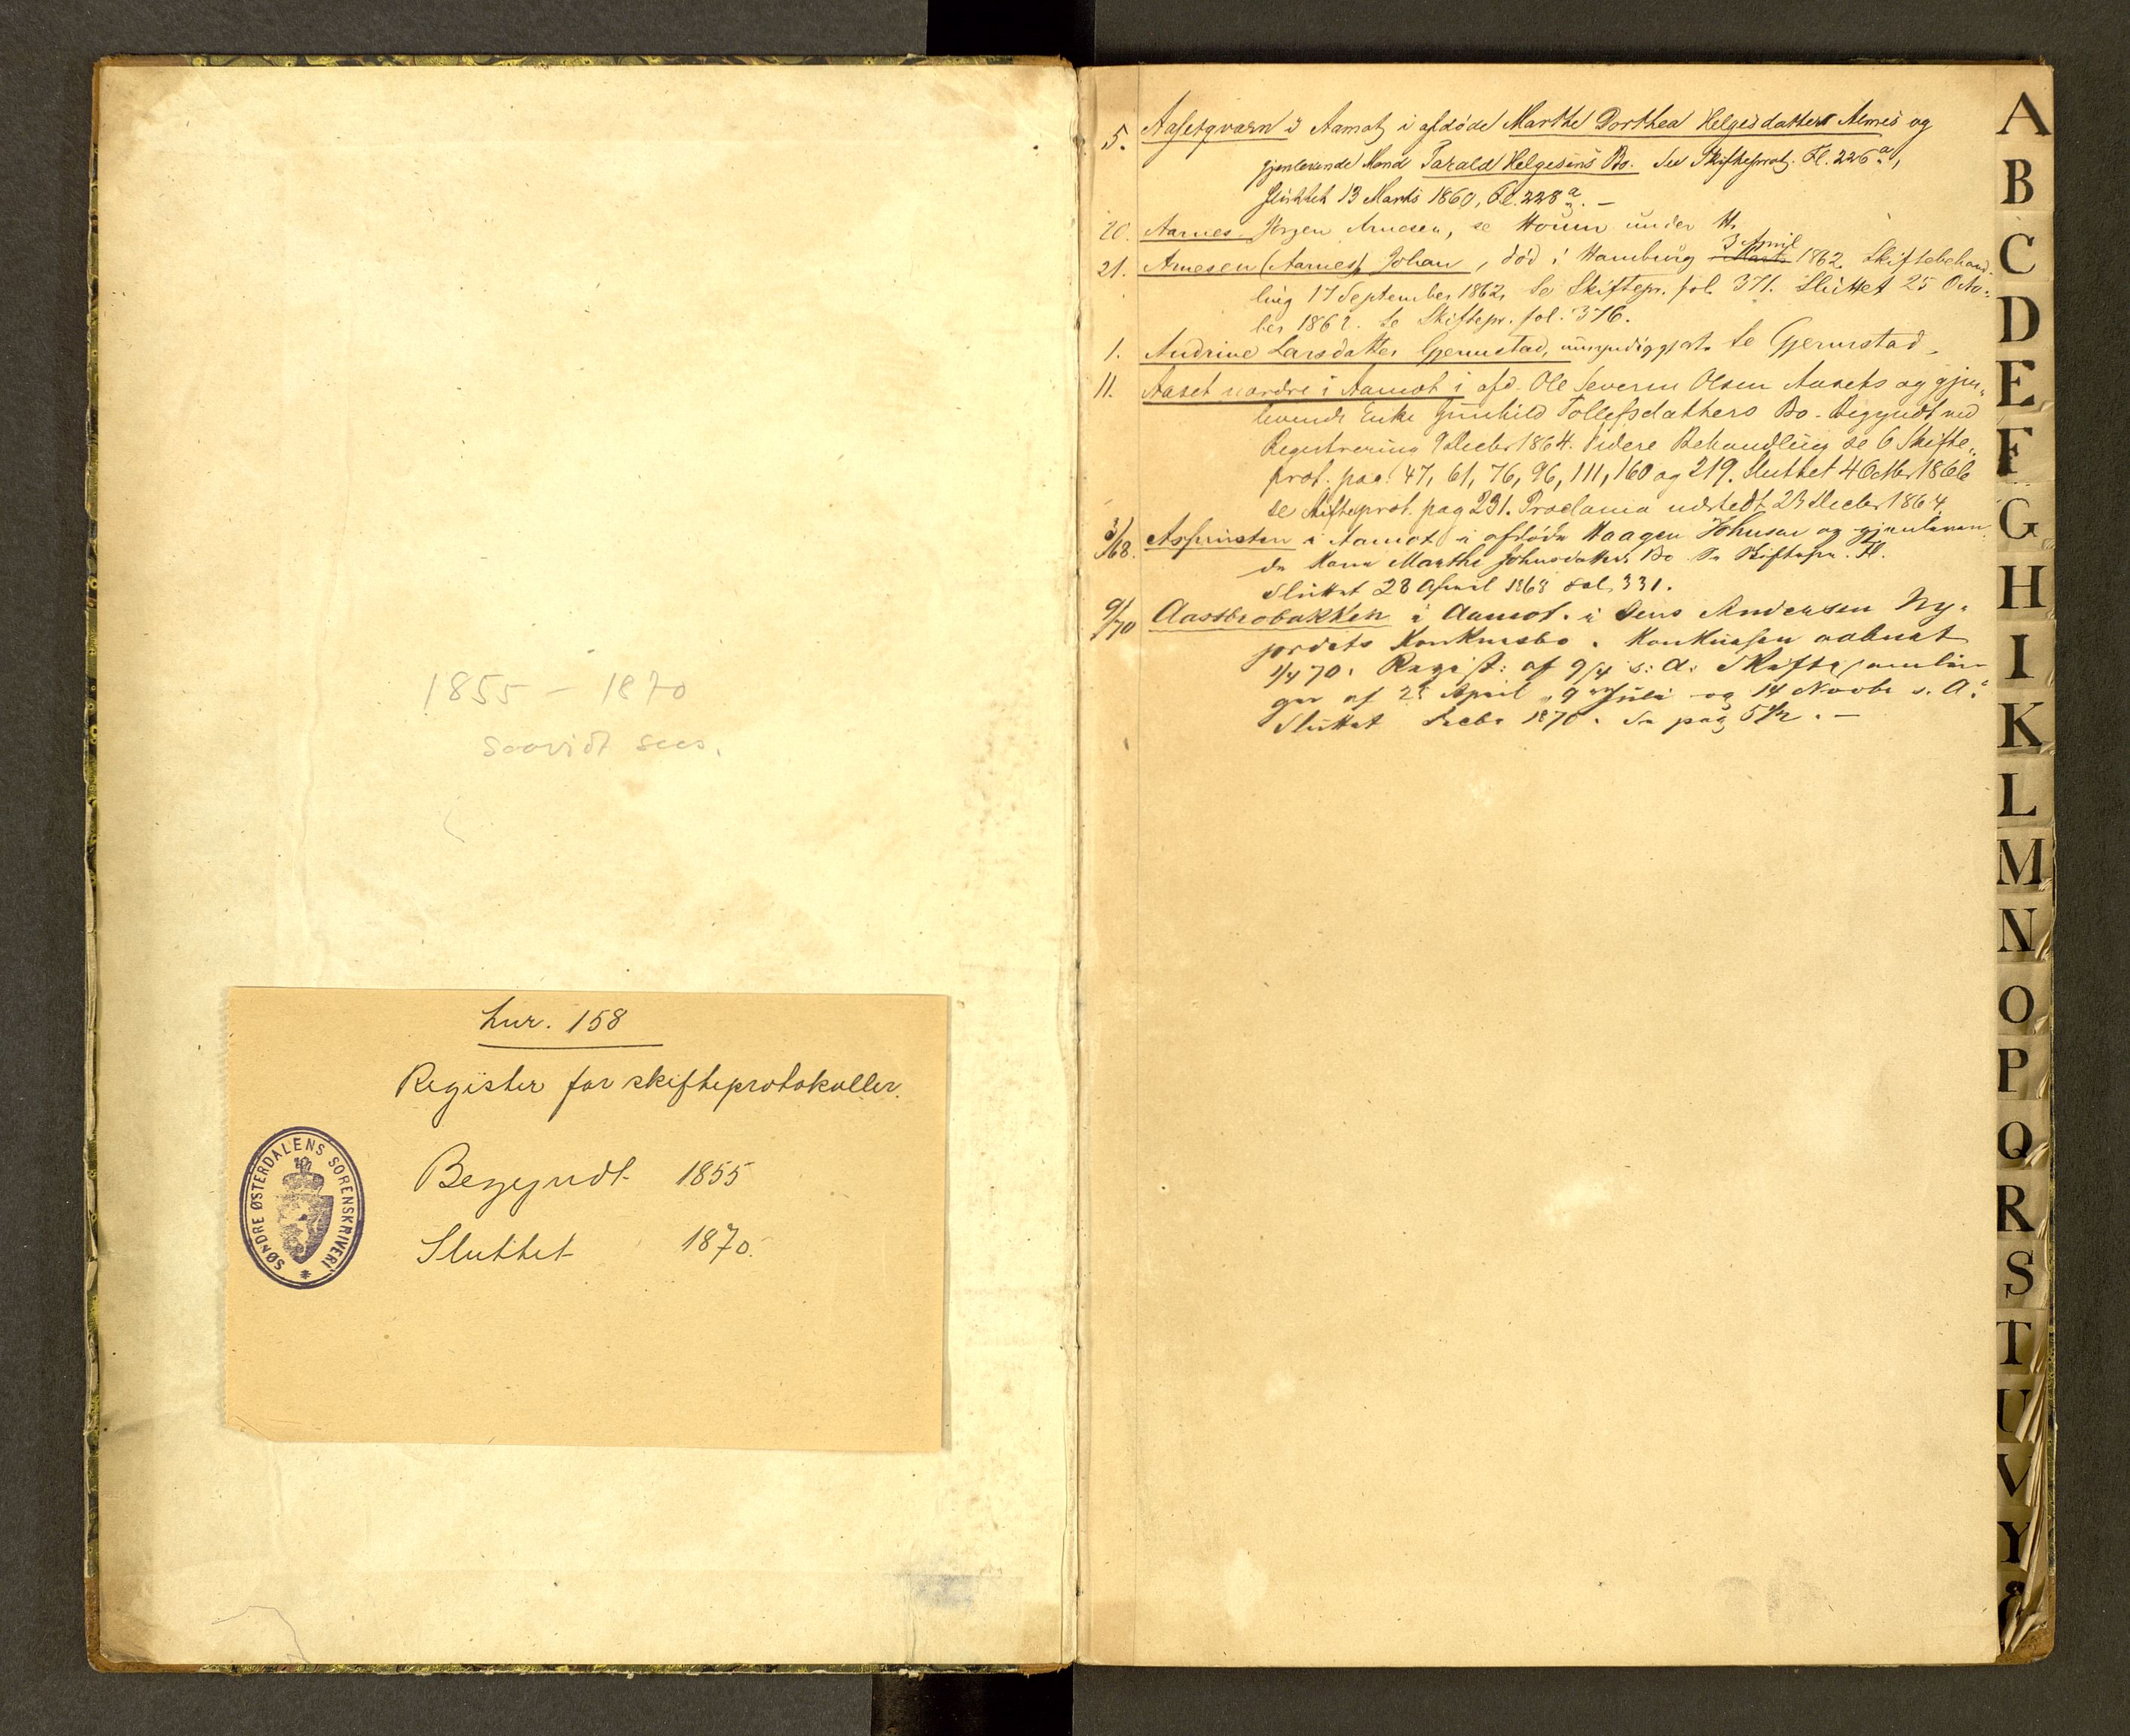 1855 - 1870
saavidt sees.
Lnr. 158
Register for skifteprotokoller.
SØNDRE ØSTERDALENS SORENSKRIVERI
Begyndt 1855
Sluttet 1870.
5. Aasetqværn i Aamot, i afdøde Marthe Dorthea Helgesdatters Almes og
gjenlevende Mand Tarald Helgesens Bo. See Skifteprot. Fl. 226a,
sluttet 13 Marts 1860, Fl. 228a. -
20. Aarnes Jörgen Arnesen, se Hou under H.
21. Arnesen (Aarnes) Johan, död i Hamburg Marts 3 April 1862. Skiftebehand-
ling 17 September 1862, se Skiftepr. fol. 371. Sluttet 25 Octo-
ber 1862. se Skiftepr. fol. 376.
1. Andrine Larsdatter Gjermstad, umyndiggjort. se Gjermstad
11. Aaset nordre i Aamot i afd. Ole Severin Olsen Aasets og gjen-
levende Enke Gunhild Tollefsdatters Bo. Begyndt med
Registrering 9 Decbr 1864. Videre Behandling se 6 Skifte-
prot. pag. 47, 61, 76, 96, 111, 160 og 219. Sluttet 4 Octbr 1866
se Skifteprot. pag 231. Proclama udstedt 23 Decbr 1864.
3/68. i Aamot i afdöde Haagen Johnsen og gjenleven-
de Kone Marthe Johnsdatters Bo Se Skiftepr. Fl.
Sluttet 28 April 1868 Fol. 331.
9/70 Aasbrobakken i Aamot. i Jens Andersen Ny-
jordets Konkursbo. Konkursen aabnet
1/4 70. Regist: af 9/4 s: A: Skiftesamlin-
ger af 25 April, 9 Juli og 14 Novbr s. A:
Sluttet Decbr 1870. Se pag 542. -
A
B
C
D
E
F
G
H
I
K
L
M
N
O
P
Q
R
S
T
U
V
Y